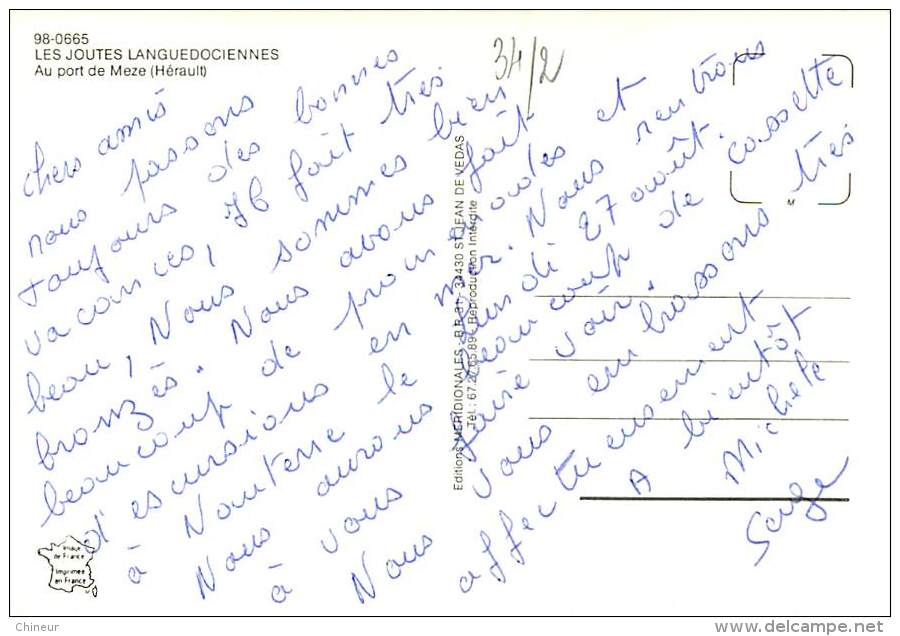 98-0665
LES JOUTES LANGUEDOCIENNES
Au port de Meze (Hérault)
34/2
chers amis
nous passons
toujours des bonnes
vacances, Il fait très
beau, Nous sommes bien
bronzés. Nous avons fait
beaucoup de promenades et
d'escursions en mer. Nous rentrons
à Nanterre le lundi 27 août.
Nous aurons beaucoup de cassette
à vous faire voir.
Nous vous embrassons très
affectueusement
A bientôt
Michele
Serge
Editions MERIDIONALES - B.P. 31 - 34430 ST JEAN DE VEDAS
Tél.: 67.27.65.89 - Reproduction Interdite
M
Image
de France
Imprimée
en France
Chineur
delcampe.net